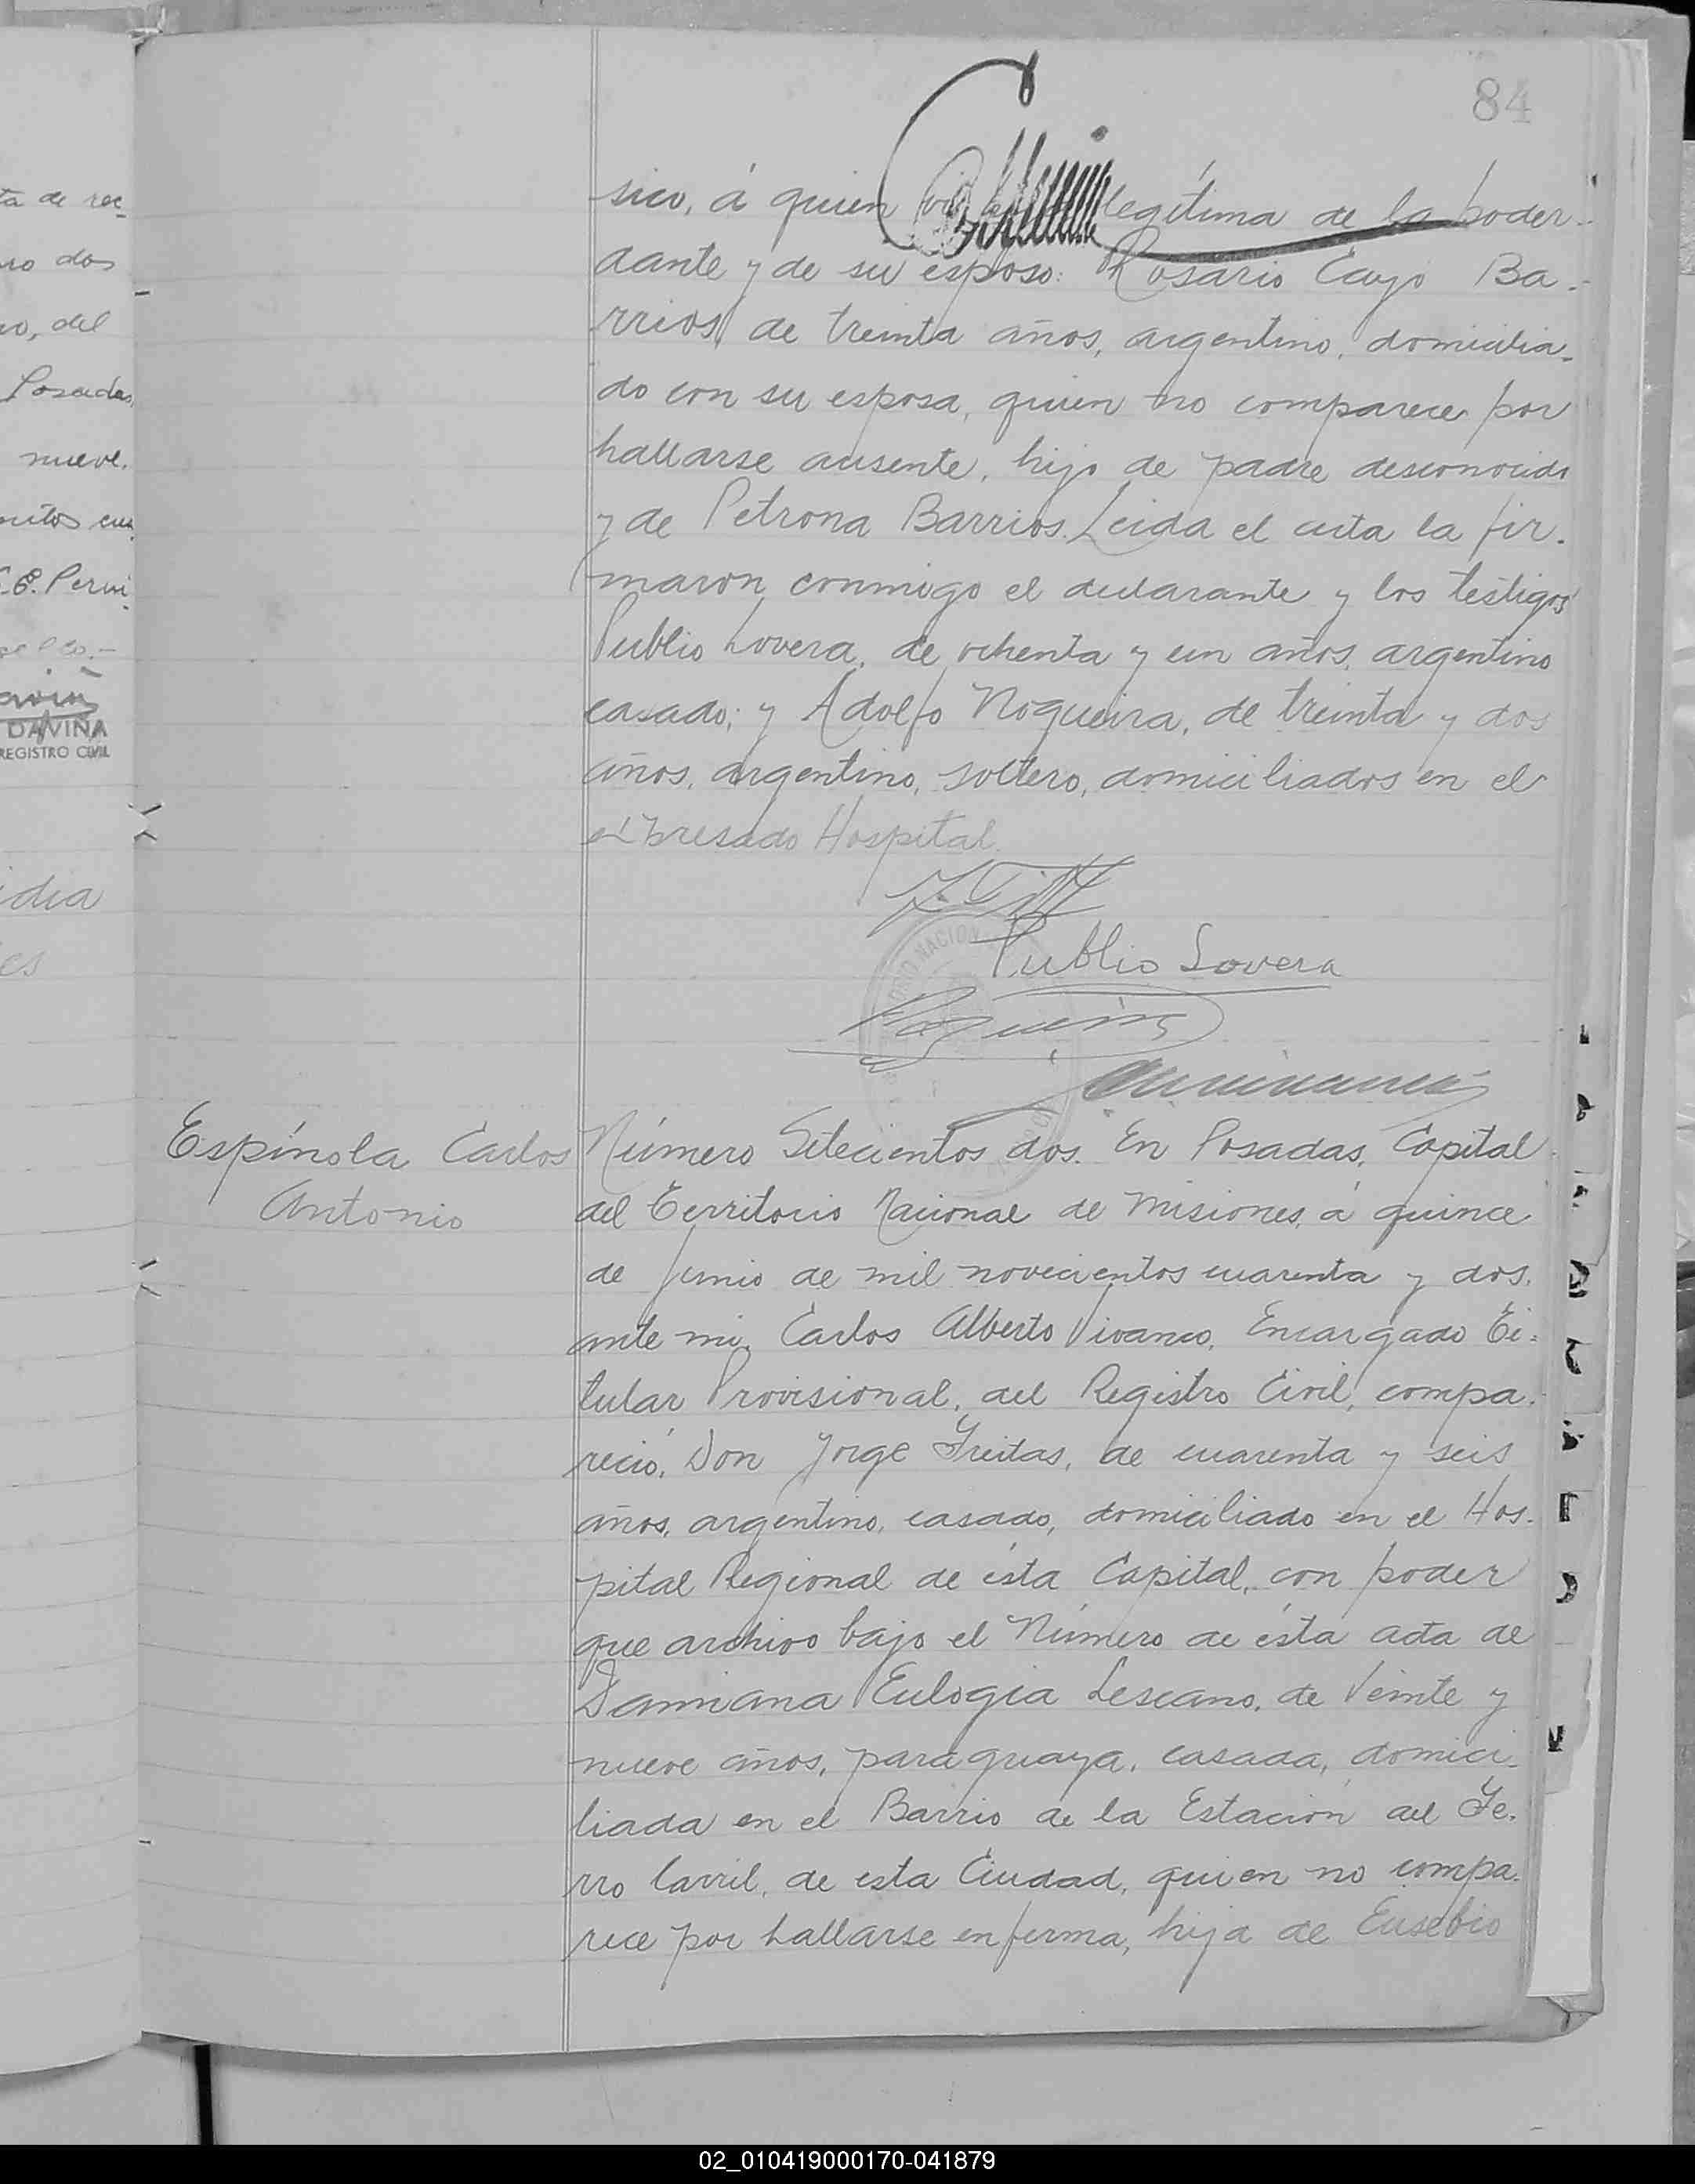 84
ta de rec-
ro dos
ro, del
Posadas,
nueve.
DAVIÑA
REGISTRO CIVIL
sico, á quien legítima de la poder-
dante y de su esposo: Rosario Cayo Ba-
rrios, de treinta años, argentino, domicilia-
do con su esposa, quien no comparece por
hallarse ausente, hijo de padre desconocido
y de Petrona Barrios. Leida el acta la fir-
maron conmigo el declarante y los testigos
Publio Lovera, de ochenta y un años, argentino
casado; y Adolfo Nogueira, de treinta y dos
años, argentino, soltero, domiciliados en el
expresado Hospital.
Publio Lovera
Espínola Carlos
Antonio
Número Setecientos dos. En Posadas, Capital
del Territorio Nacional de Misiones, á quince
de Junio de mil novecientos cuarenta y dos,
ante mi, Carlos Alberto Vivanco, Encargado Ti-
tular Provisional, del Registro Civil, compa-
reció, Don Jorge Freitas, de cuarenta y seis
años, argentino, casado, domiciliado en el Hos-
pital Regional de ésta Capital, con poder
que archivo bajo el Número de ésta acta de
Damiana Eulogia Lescano, de veinte y
nueve años, paraguaya, casada, domici-
liada en el Barrio de la Estación del Fe-
rro Carril, de esta Ciudad, quien no compa-
rece por hallarse enferma, hija de Eusebio
02_010419000170-041879